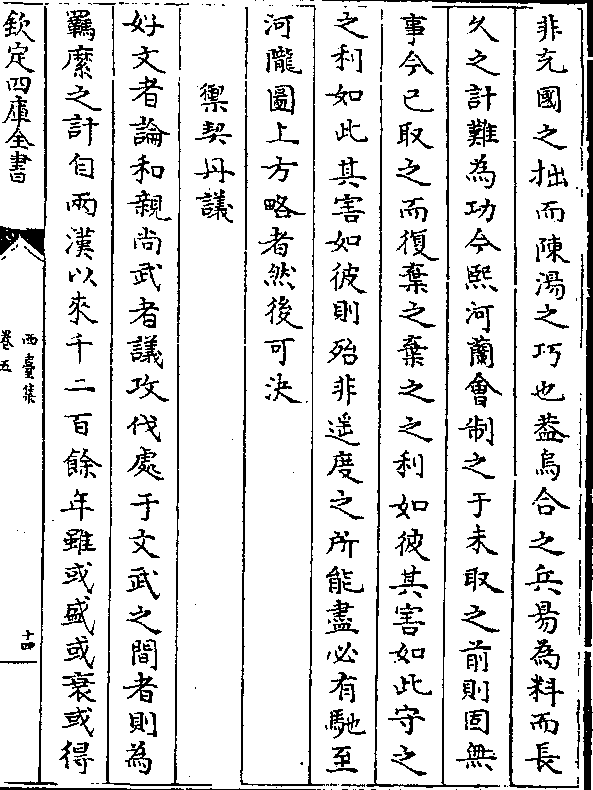 非充國之拙而陳湯之巧也葢烏合之兵易為料而長
久之計難為功今熙河蘭會制之于未取之前則固無
事今已取之而復棄之棄之之利如彼其害如此守之
之利如此其害如彼則殆非遥度之所能盡必有馳至
河隴圖上方略者然後可決
禦契丹議
好文者論和親尚武者議攻伐處于文武之間者則為
羈縻之計自兩漢以來千二百餘年雖或盛或衰或得
欽定四庫全書
西臺集
卷五
十四